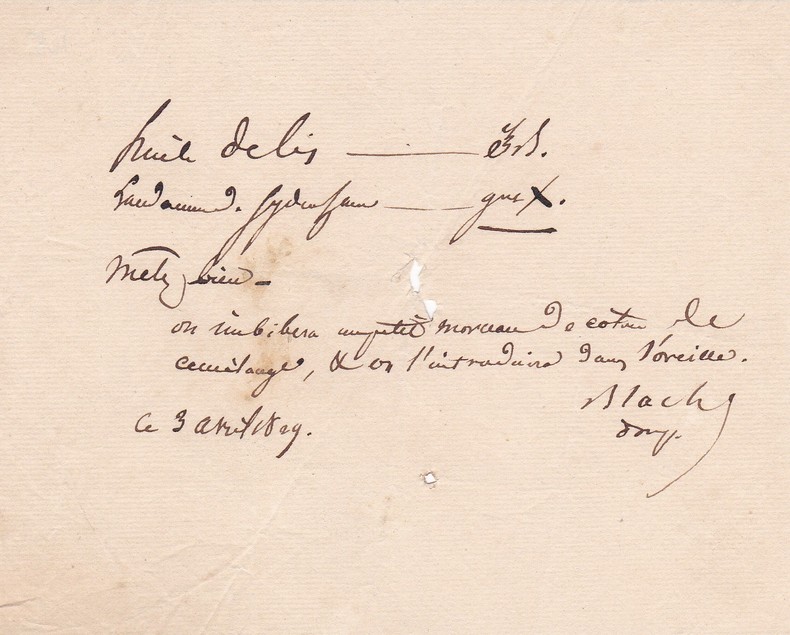 huile de lis — ℥ß.
Laudanum d. Sydenham — gtes X.
Mêlez bien —
on imbibera un petit morceau de coton de
ce mélange, & on l'introduira dans l'oreille.
Blache
ce 3 avril 1829.